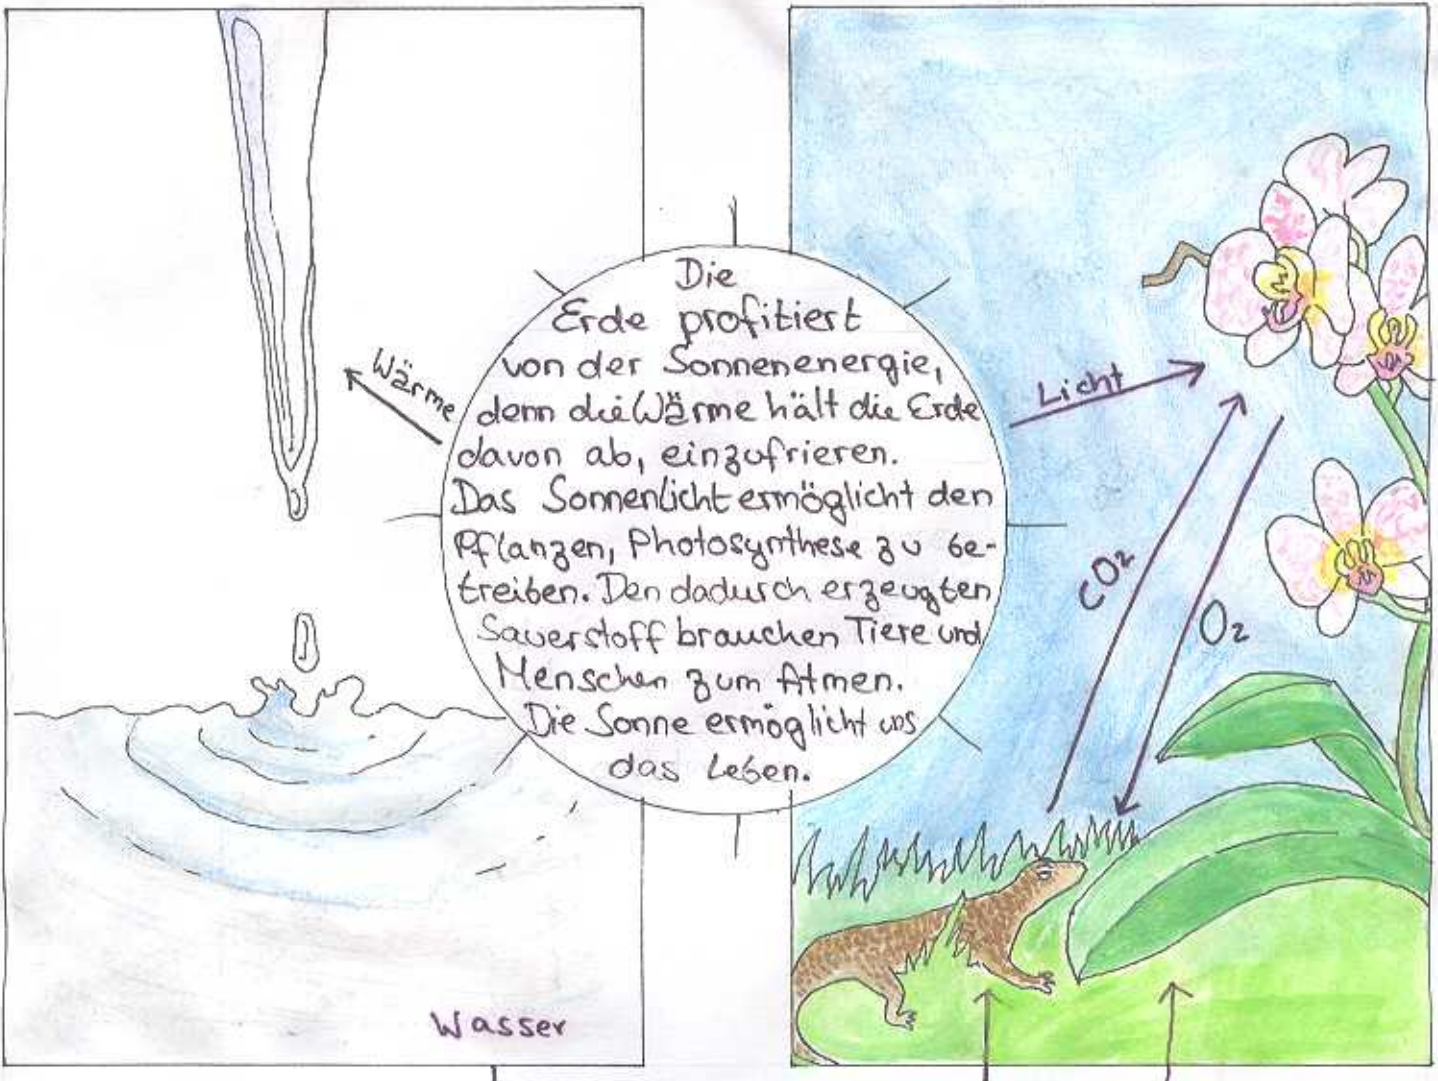 Die
Erde profitiert
von der Sonnenenergie,
denn die Wärme hält die Erde
davon ab, einzufrieren.
Das Sonnenlicht ermöglicht den
Pflanzen, Photosynthese zu be-
treiben. Den dadurch erzeugten
Sauerstoff brauchen Tiere und
Menschen zum Atmen.
Die Sonne ermöglicht uns
das Leben.
Wärme
Licht
CO₂
O₂
Wasser